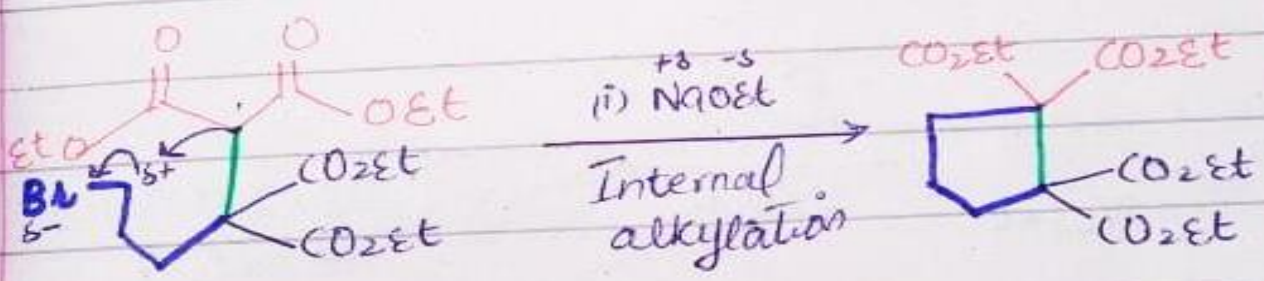 O O
EtO OEt
Br δ- δ+
CO2Et
CO2Et
+δ -δ
(i) NaOEt
Internal
alkylation
CO2Et CO2Et
CO2Et
CO2Et